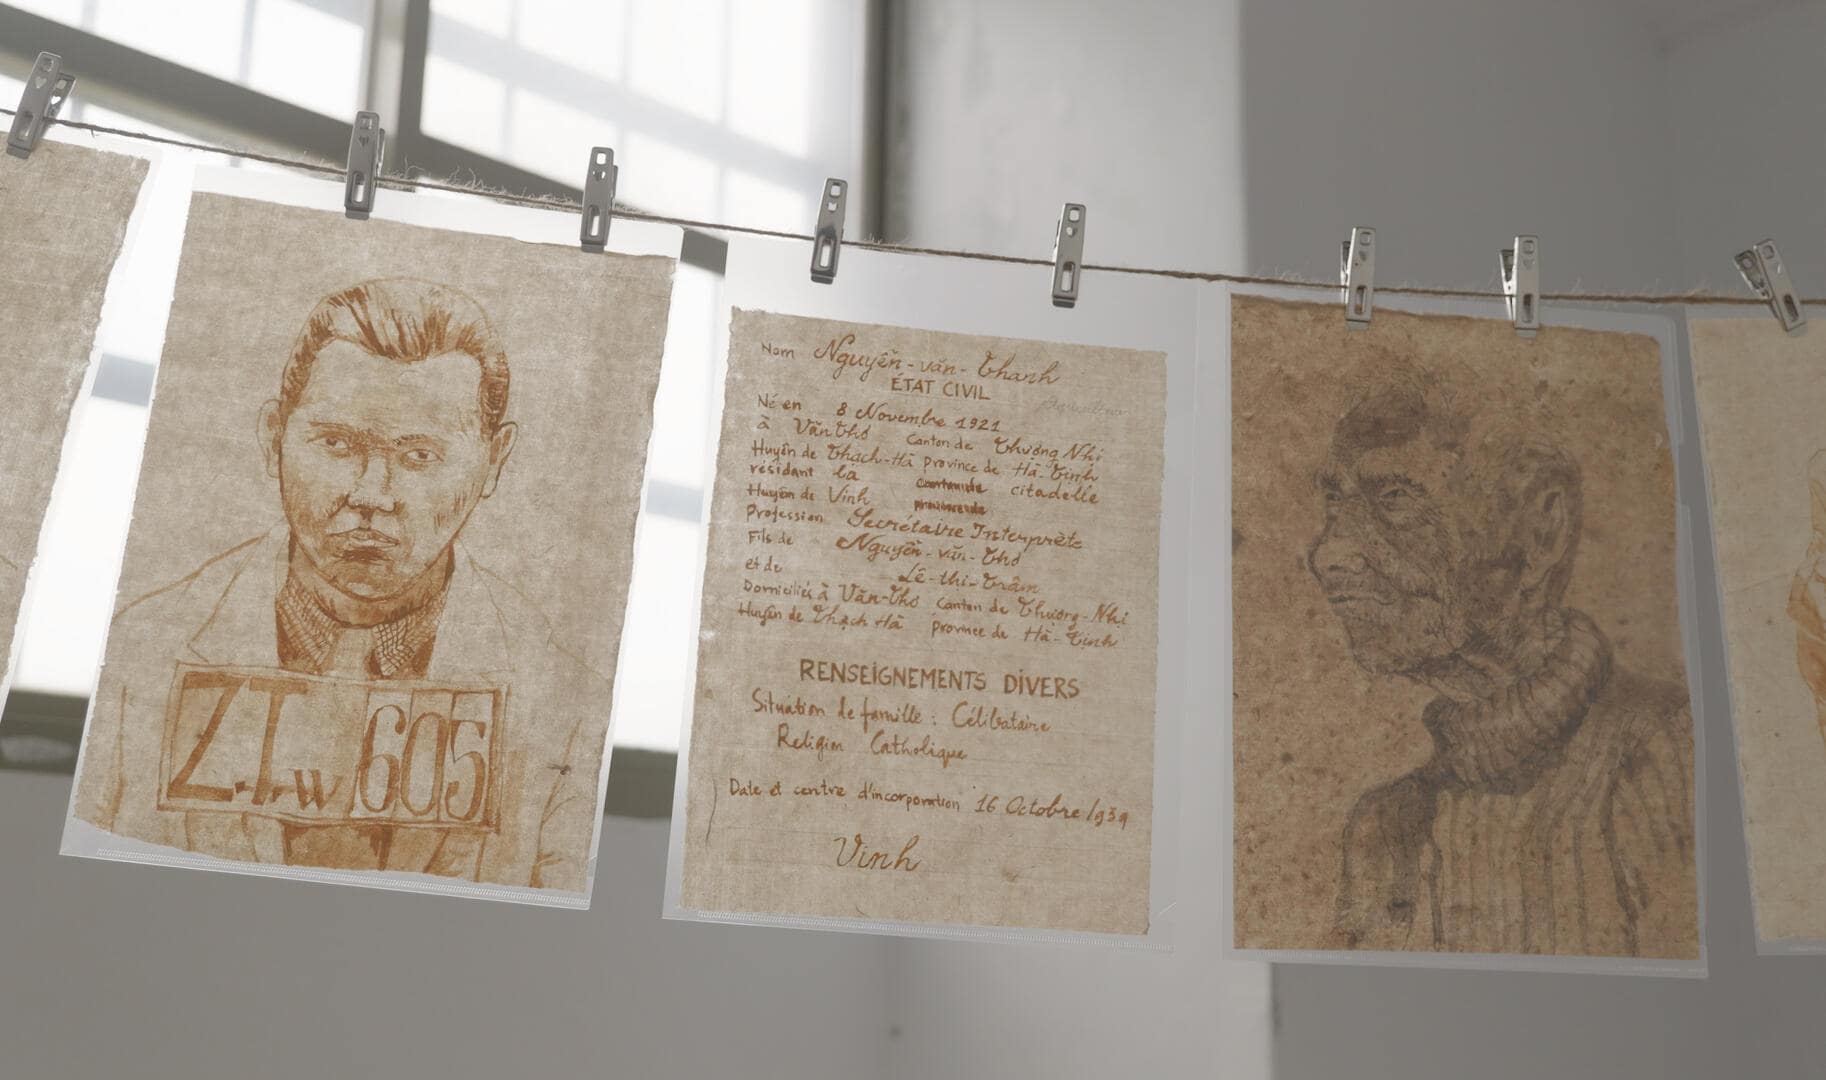 Z.I.w 605
Nom Nguyễn-văn-Thanh
ÉTAT CIVIL
Né en 8 Novembre 1921
à Văn Thó Canton de Thượng Nhi
Huyên de Thạch-Hà Province de Hà-Tinh
résidant là citadelle
Huyên de Vinh
Profession Secrétaire Interprète
Fils de Nguyễn-văn-Thó
et de Lê-thi-Trâm
Domiciliés à Văn-Thó Canton de Thượng-Nhi
Huyên de Thạch Hà Province de Hà-Tinh
RENSEIGNEMENTS DIVERS
Situation de famille : Célibataire
Religion Catholique
Date et centre d'incorporation 16 Octobre 1939
Vinh